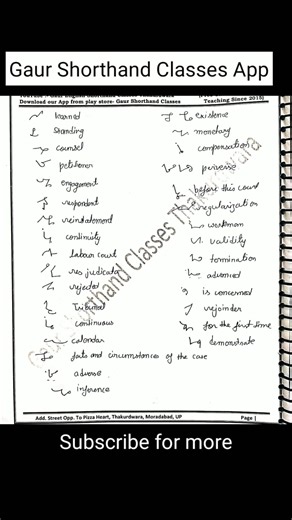 Gaur Shorthand Classes App
Download our App from play store- Gaur Shorthand Classes
Teaching Since 2015)
learned
standing
counsel
petitioner
engagement
respondent
reinstatement
continuity
labour court
res judicator
rejected
Tribunal
continuous
calendar
fats and circumstances of the case
adverse
inference
existence
monetary
compensation
perverse
before this court
regularization
workman
validity
termination
advanced
is concerned
rejoinder
for the first time
demonstrate
Gaur Shorthand Classes Thakurdwara
Add. Street Opp. To Pizza Heart, Thakurdwara, Moradabad, UP
Page |
Subscribe for more